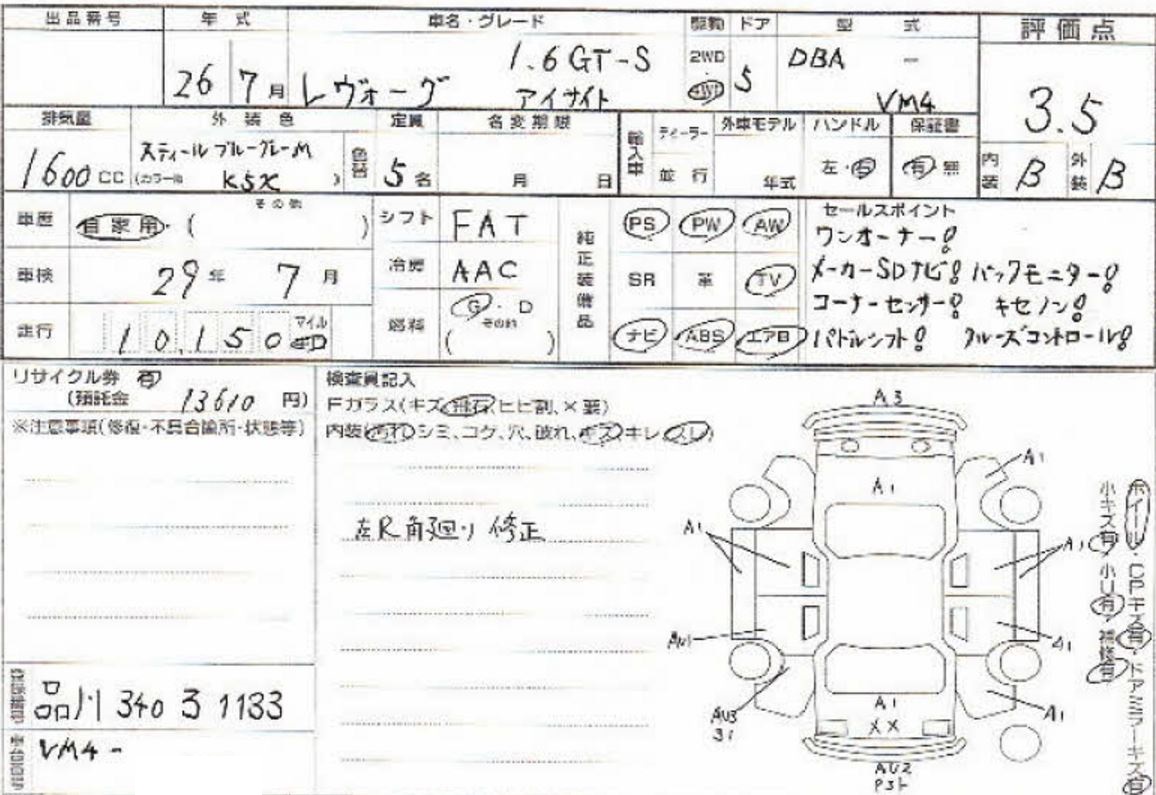 出品番号 年式 車名・グレード 駆動 ドア 型式 評価点
26 7月 レヴォーグ 1.6 GT-S アイサイト 2WD・4WD 5 DBA - VM4 3.5
排気量 外装色 定員 名変期限 輸入車 ディーラー 外車モデル ハンドル 保証書
1600CC スティールブルーグレーM (カラーNo. K5X) 色替 5名 月 日 並行 年式 左・右 有・無 内装 B 外装 B
車歴 自家用・( その他 ) シフト FAT 純正装備品 PS PW AW セールスポイント
ワンオーナー!
車検 29年 7月 冷房 AAC SR 革 TV メーカーSDナビ! バックモニター!
コーナーセンサー! キセノン!
走行 10,150 マイル 燃料 G・D その他 ( ) ナビ ABS エアB パドルシフト! クルーズコントロール!
リサイクル券 有 検査員記入
(預託金 13610 円) Fガラス(キズ、飛石、ヒビ割、×要)
※注意事項(修復・不具合箇所・状態等) 内装(汚れ、シミ、コゲ、穴、破れ、キズ、キレ、スレ)
左R角廻り修正
A3
A1
A1
A1
A1
AU1
A1
AU3
A1
A1
XX
AU2
ホイール・CPキズ有、ドアミラーキズ有
小キズ有、小U有、補修有
品川 340 ろ 1133
VM4 -